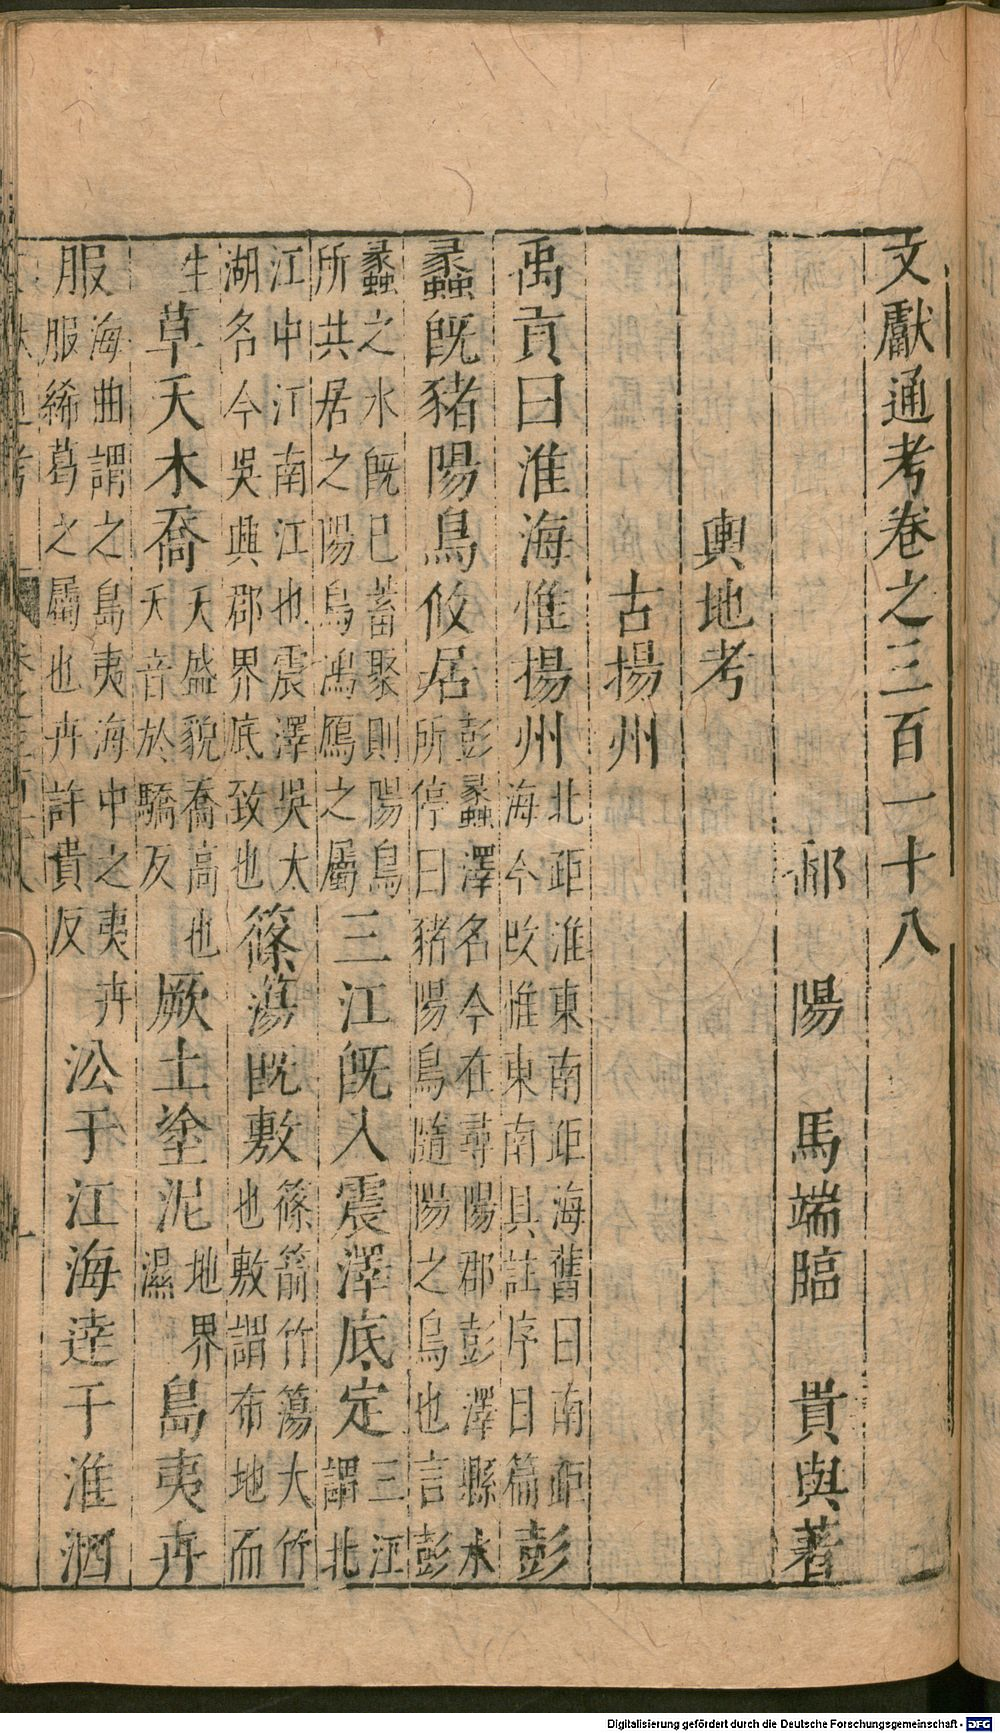 文獻通考卷之三百一十八
鄱陽馬端臨貴與著
輿地考
古揚州
禹貢曰淮海惟揚州北距淮東南距海舊曰南距海今改惟東南具註序目篇彭
蠡旣豬陽鳥攸居彭蠡澤名今在尋陽郡彭澤縣水所停曰豬陽鳥隨陽之鳥也言彭
蠡之水旣已蓄聚則陽鳥所共居之陽鳥鴻鴈之屬三江旣入震澤底定三江謂北
江中江南江也震澤吳太湖名今吳興郡界底致也篠蕩旣敷篠箭竹簜大竹也敷謂布地而
生草夭木喬夭盛貌喬高也夭音於驕反厥土塗泥地界濕島夷卉
服海曲謂之島夷海中之夷卉服服絺葛之屬也卉許貴反㳂于江海達于淮泗
Digitalisierung gefördert durch die Deutsche Forschungsgemeinschaft - DFG